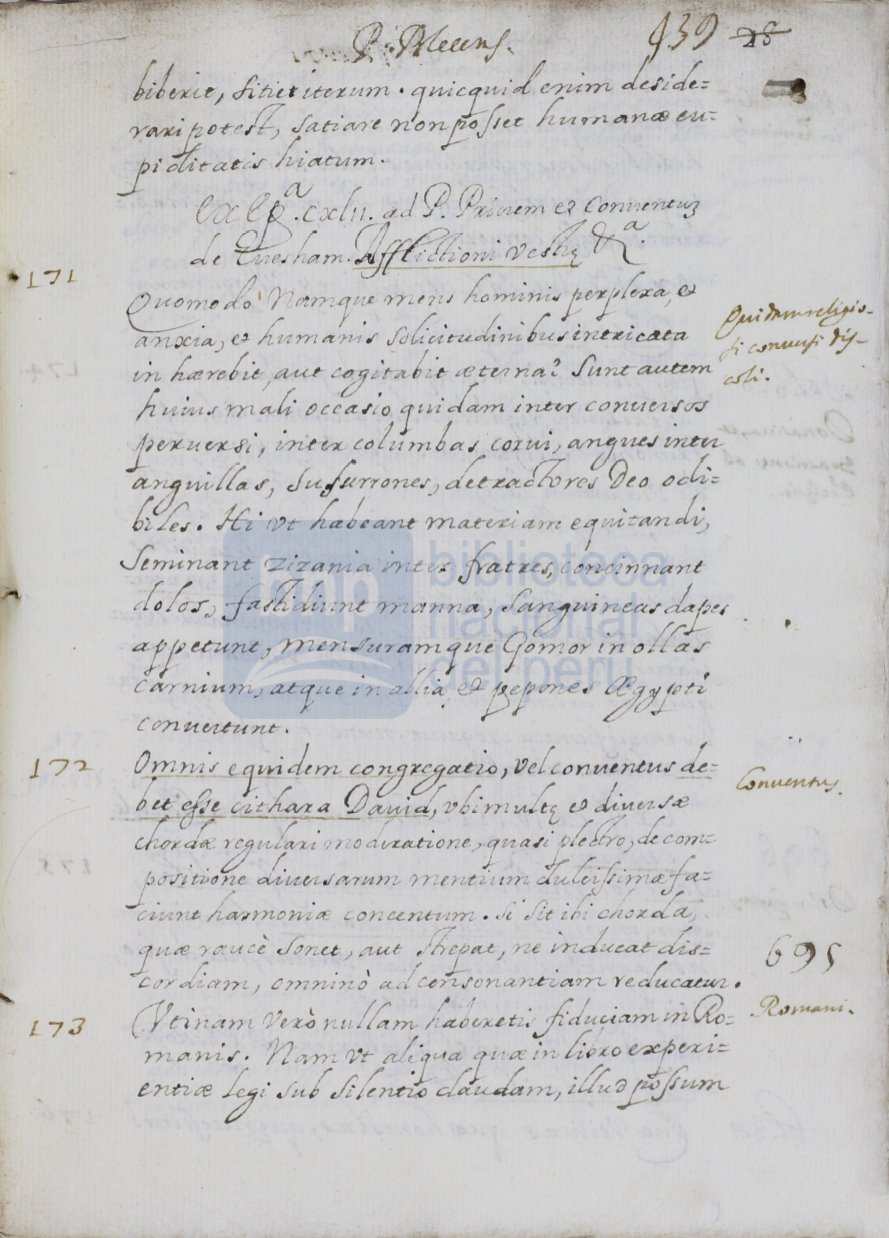 P. Blecens. 439 28
biberit, sitiet iterum. quicquid enim deside=
rari potest, satiare non posset humanæ cu=
piditatis hiatum.
Ex Epª. cxlii. ad P. Priorem et Conventuʒ
de Evesham. Afflictioni vestrę &ª.
171
Quomodo Namque mens hominis perplexa, et
anxia, et humanis solicitudinibus intricata
in hærebit, aut cogitabit æterna? Sunt autem
huius mali occasio quidam inter conversos
perversi, inter columbas corui, angues inter
anguillas, susurrones, detractores Deo odi=
biles. Hi vt habeant materiam equitandi,
Seminant zizania inter fratres, concinnant
dolos, fastidiunt manna, sanguineas dapes
appetunt, mensuramque Gomor in ollas
carnium, atque in allia, et pepones Ægypti
convertunt.
Quidam religio-
si conversi dis-
coli.
172
Omnis equidem congregatio, vel conventus de=
bet esse cithara David, vbi multę et diversæ
chordæ regulari moderatione, quasi plectro, de com=
positione diversarum mentium dulcissimæ fa=
ciunt harmoniæ concentum. Si sit ibi chorda,
quæ raucè sonet, aut strepat, ne inducat dis=
cordiam, omninò ad consonantiam reducatur.
Conventus.
695
173
Vtinam verò nullam haberetis fiduciam in Ro=
manis. Nam vt aliqua quæ in libro experi=
entiæ legi sub silentio claudam, illud possum
Romani.
bnp biblioteca
nacional
del perú